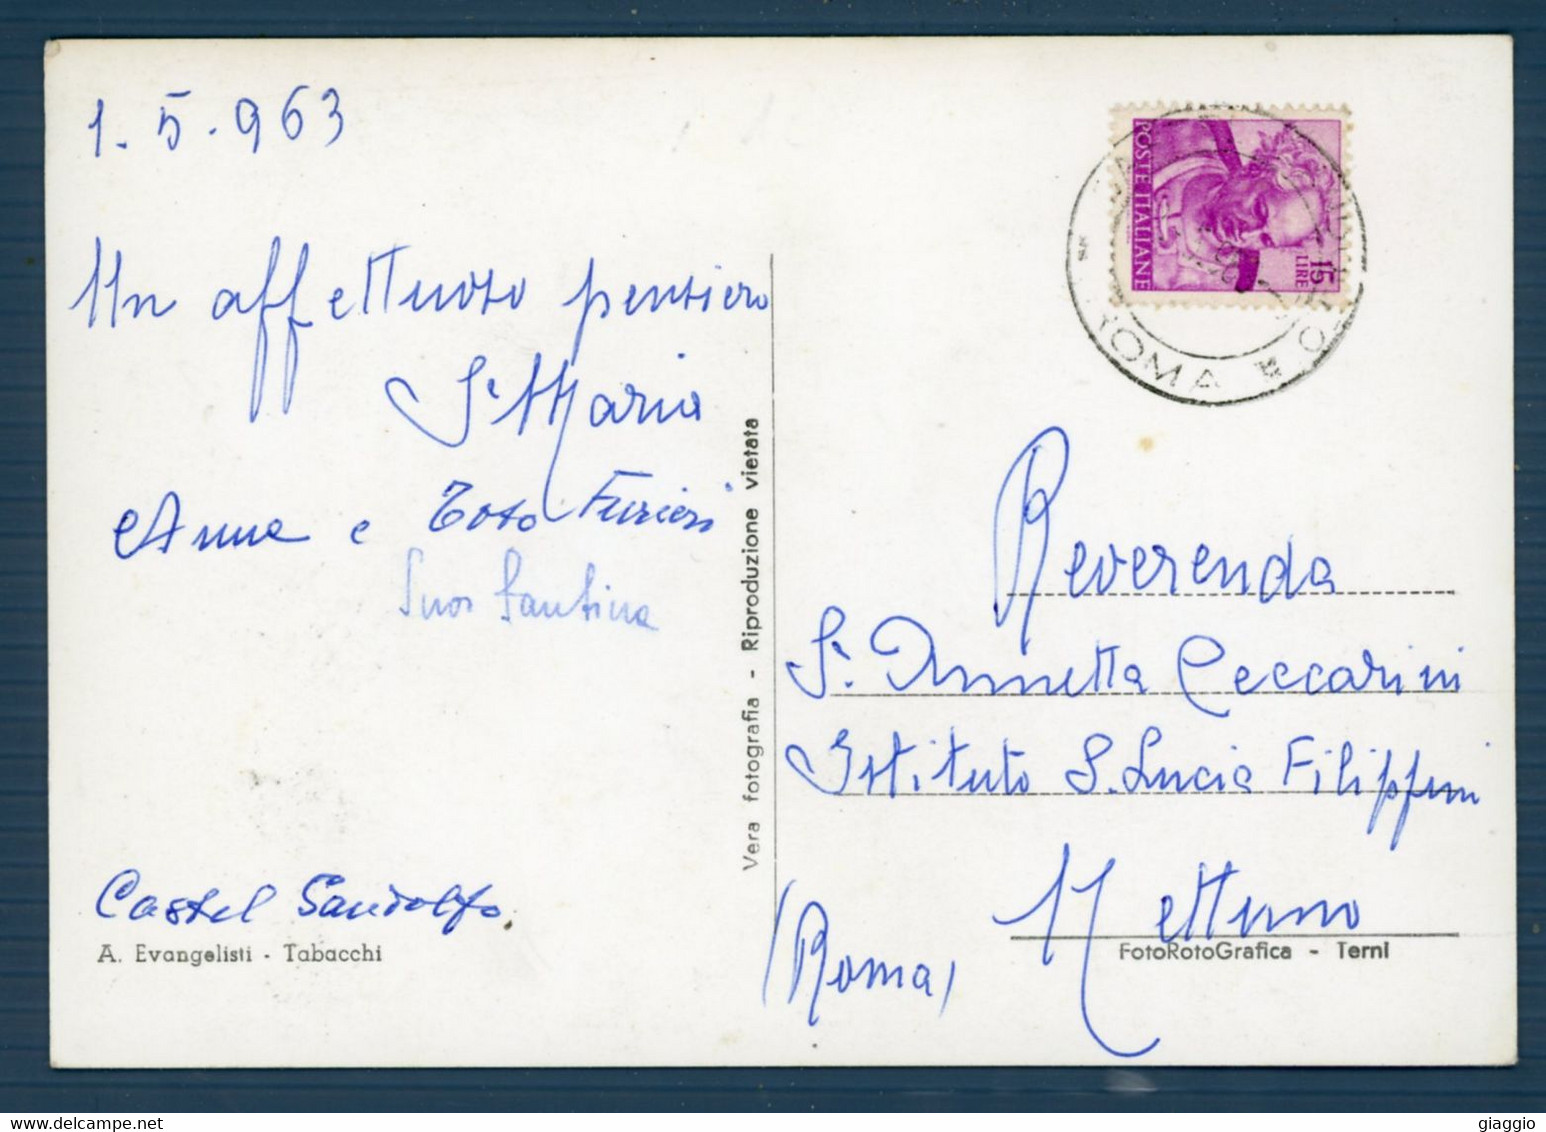 1. 5. 963
Un affettuoso pensiero
Sr Maria
Anna e Toto Furieri
Suor Santina
Castel Gandolfo
A. Evangelisti - Tabacchi
Vera fotografia - Riproduzione vietata
POSTE ITALIANE
15
LIRE
ROMA
Reverenda
Sr. Annetta Ceccarini
Istituto S. Lucia Filippini
Nettuno
(Roma)
FotoRotoGrafica - Terni
giaggio